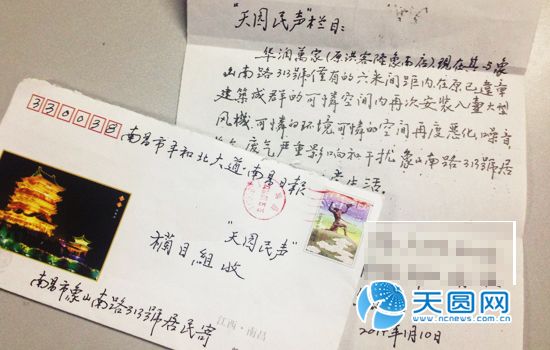 "天圆民声"栏目:
华润萬家(原洪客隆象南店)现在其与象
山南路313號僅有的六米间距内在原已違章
建築成群的可憐空间内再次安装八臺大型
風機.可憐的环境可憐的空间再度恶化,噪音
废气严重影响和干扰象山南路313號居
生活。
330038
南昌市平和北大道·南昌日報
"天圆民声"
栏目組 收
南昌市象山南路313號居民寄
江西·南昌
天圆网
www.ncnews.com.cn
1月10日